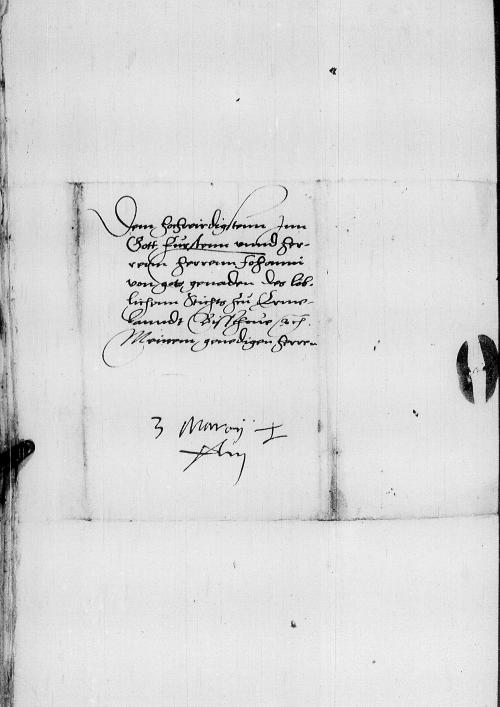 Dem hochwirdigstenn Inn
Gott furstenn vnnd her-
renn herrenn Johanni
von gots genaden des lob-
lichenn Stichts zu Erme-
lanndt Bisscheue
Meinem genedigen herren
3 Marcij